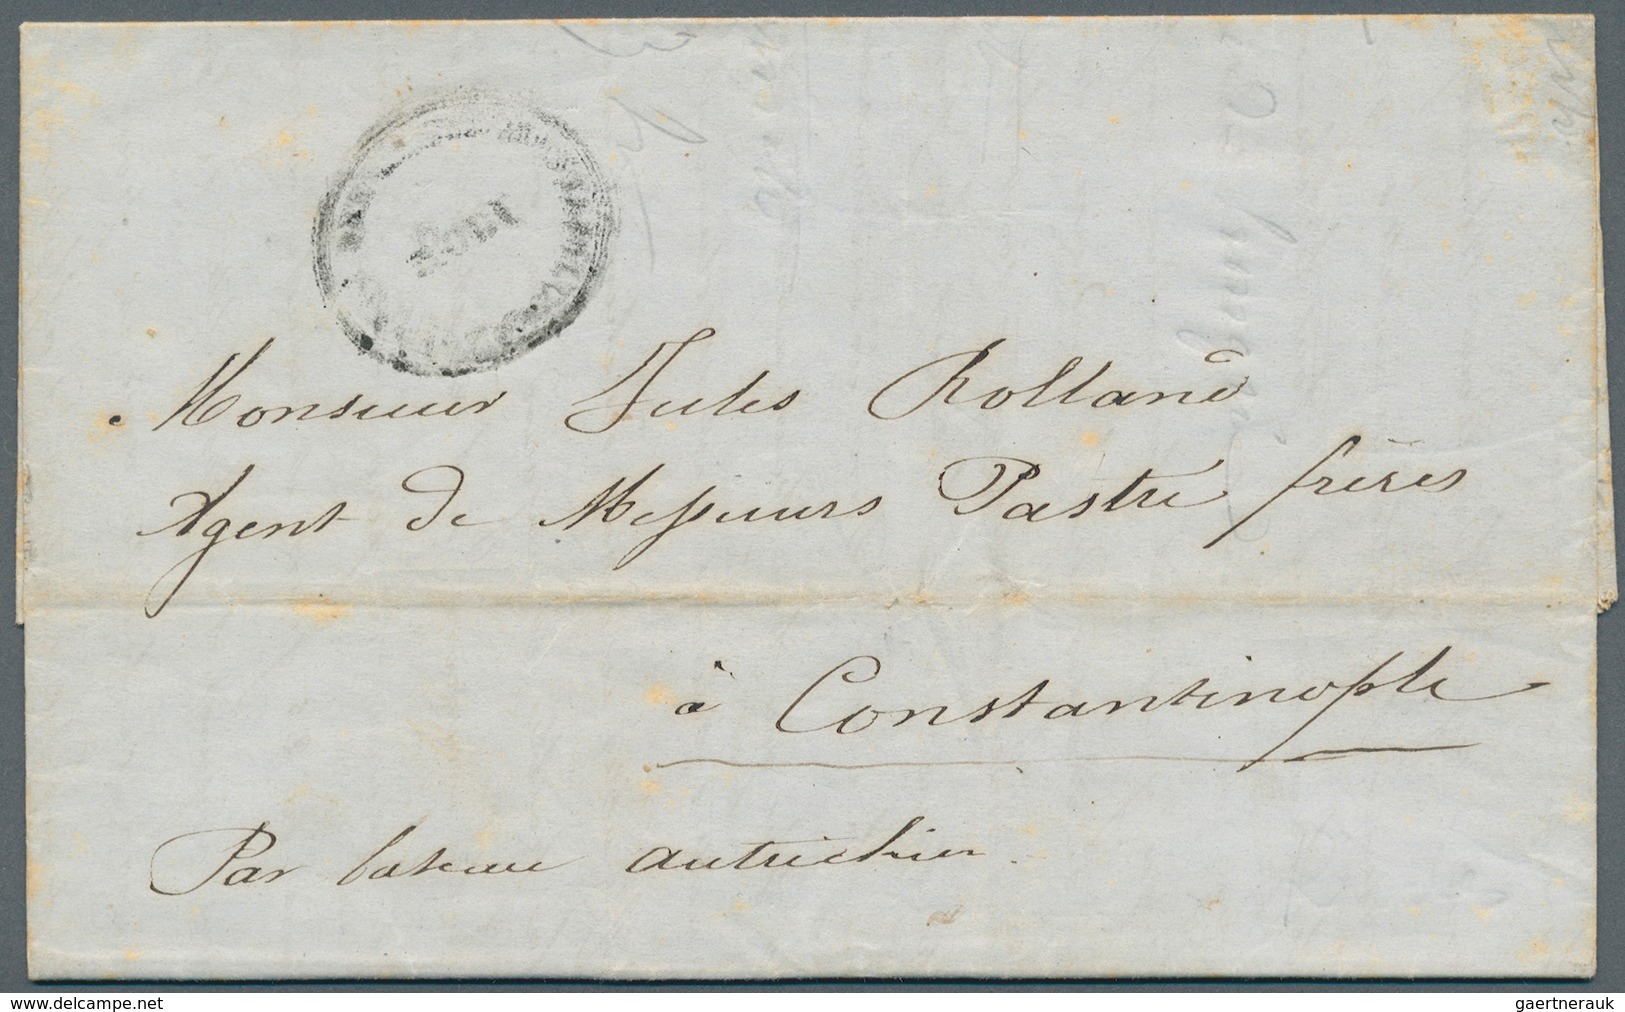 Monsieur Jules Rolland
Agent de Messieurs Pastre frères
à Constantinople
Par bateau autrichien
delcampe.net
gaertnerauk